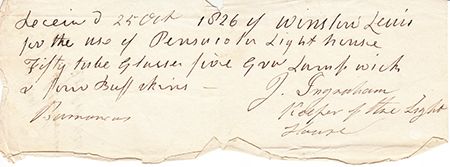 Received 25 Oct 1826 of Winslow Lewis
for the use of Pensacola Light house
Fifty tube Glasses five Gro Lamp wick
& four Buff skins —
J. Ingraham
Barrancas
Keeper of the Light
House